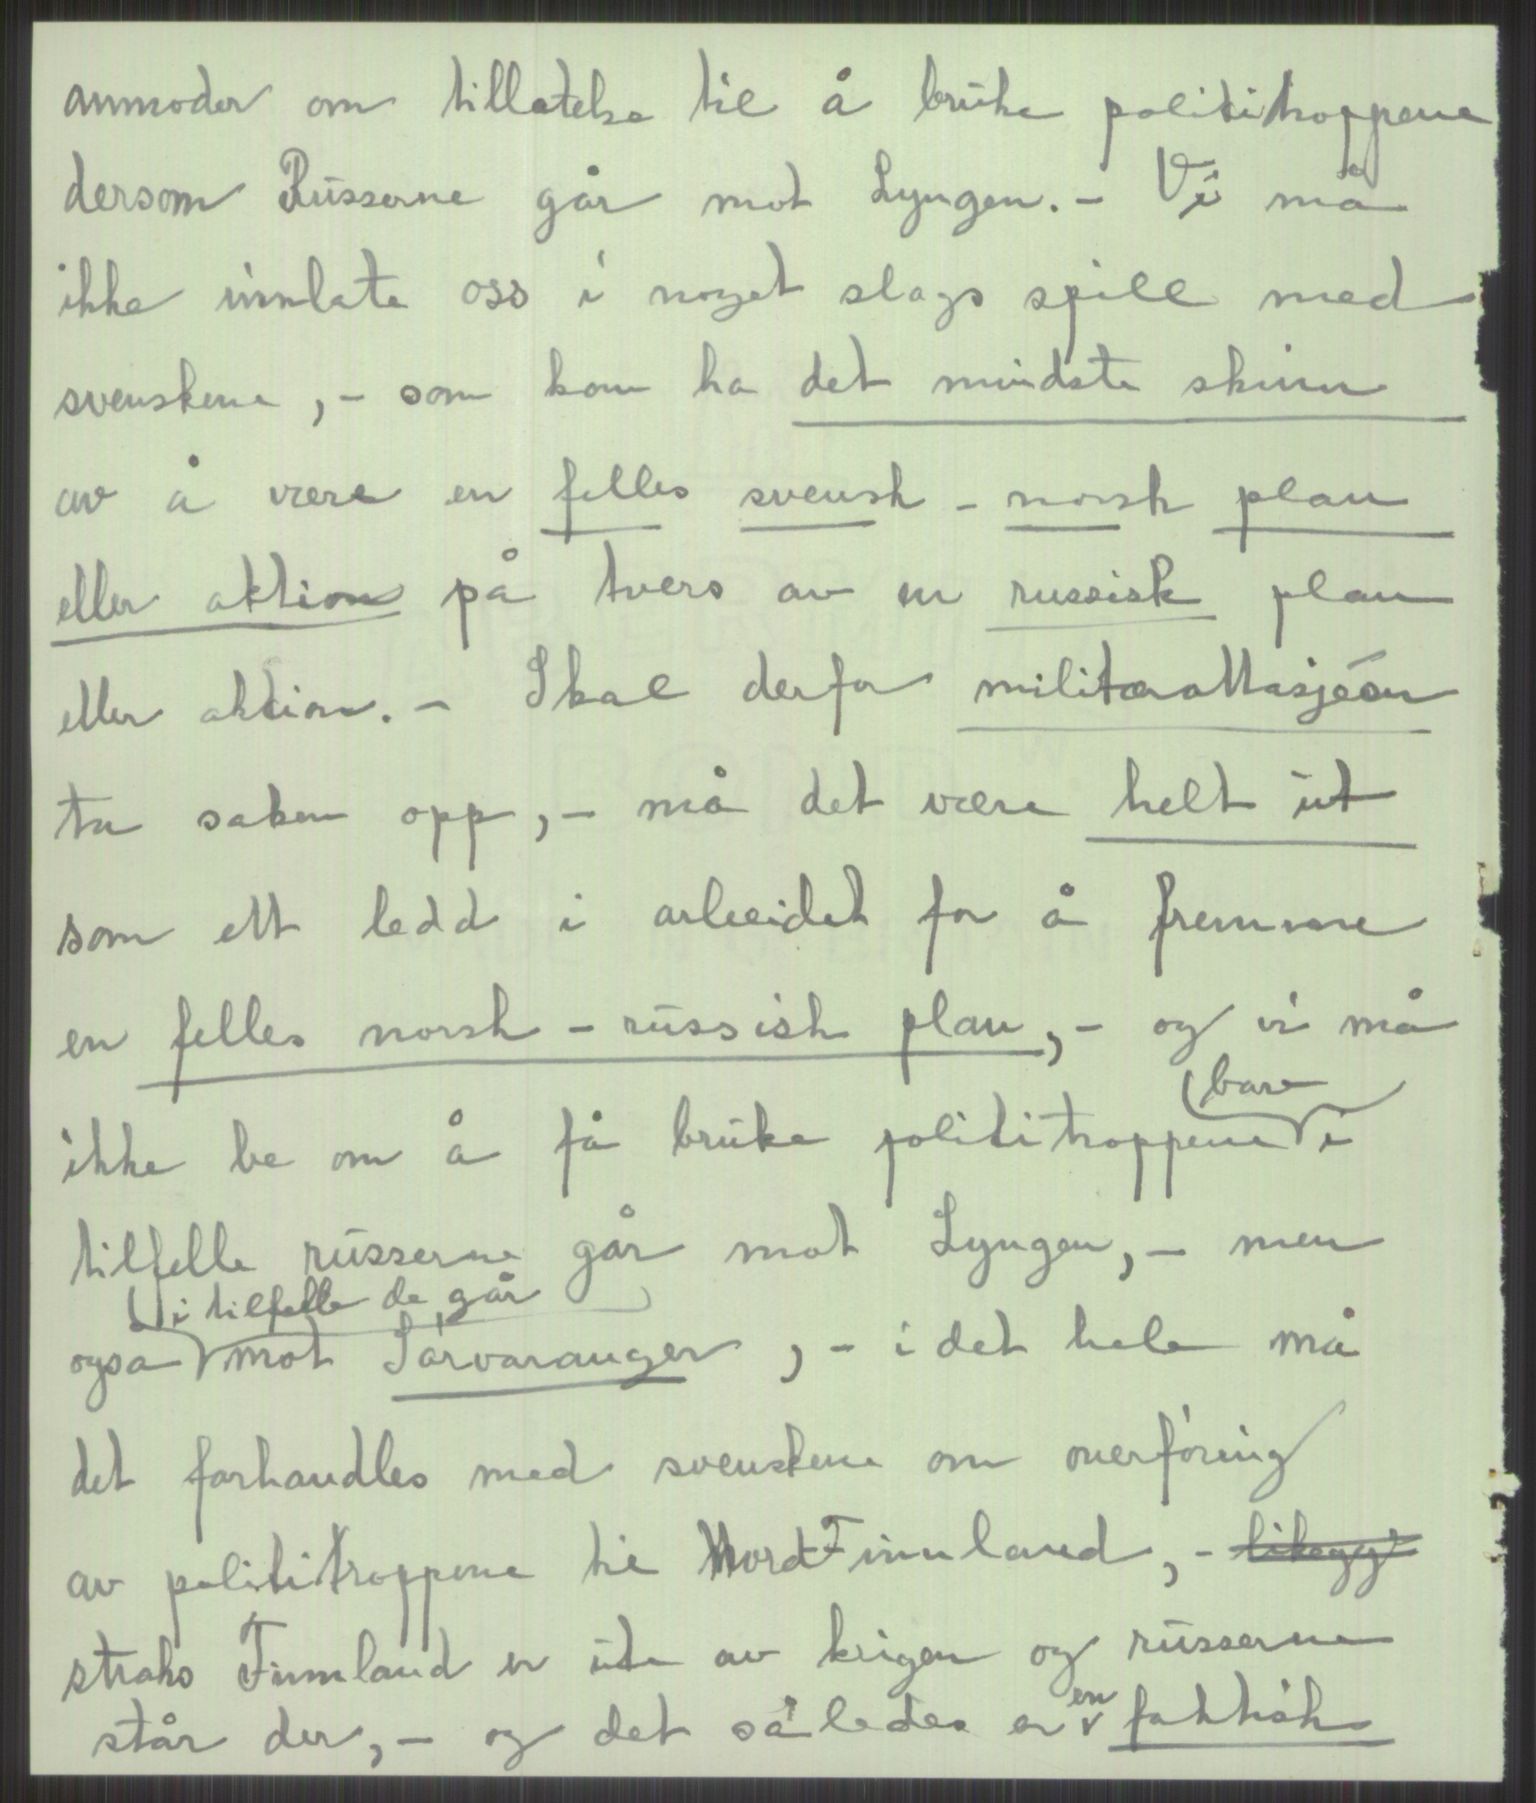 anmoder om tillatelse til å bruke polititroppene
dersom Russerne går mot Lyngen. - Vi må
ikke innlate oss i noget slags spill med
svenskene, - som kan ha det mindste skinn
av å være en felles svensk - norsk plan
eller aktion på tvers av en russisk plan
eller aktion. - Skal derfor militærattasjéen
ta saken opp, - må det være helt ut
som ett ledd i arbeidet for å fremme
en felles norsk - russisk plan, - og vi må
bare
ikke be om å få bruke polititroppene i
tilfelle russerne går mot Lyngen, - men
i tilfelle de går
også mot Sørvaranger, - i det hele må
det forhandles med svenskene om overføring
av polititroppene til Nord Finnland, - likegyl
straks Finnland er ute av krigen og russerne
en
står der, - og det således er faktisk